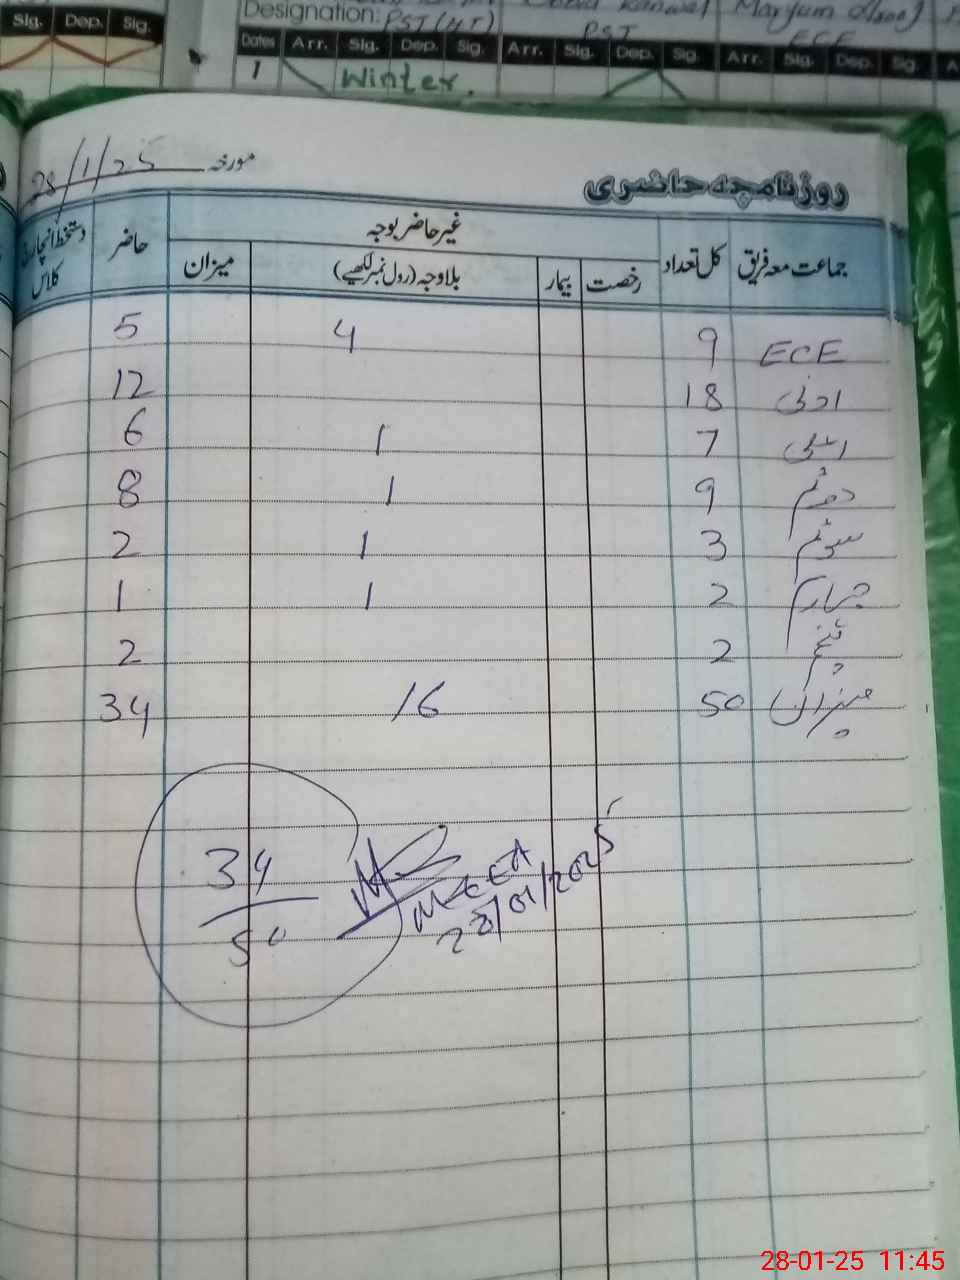 Sig. Dep. Sig.
Designation: PST (HT) PST ECE
Maryum
Dates Arr. Sig. Dep. Sig. Arr. Sig. Dep. Sig. Arr. Sig. Dep. Sig.
1 Winter.
روزنامچہ حاضری
مورخہ 28/1/25
جماعت معہ فریق کل تعداد غیر حاضر بوجہ حاضر دستخط انچارج کلاس
رخصت بیمار بلاوجہ (رول نمبر لکھیے) میزان
ECE 9 4 5
ادنیٰ 18 12
اعلیٰ 7 1 6
دوئم 9 1 8
سوئم 3 1 2
چہارم 2 1 1
پنجم 2 2
میزان 50 16 34
34
50
MEEA
28/01/2025
28-01-25 11:45